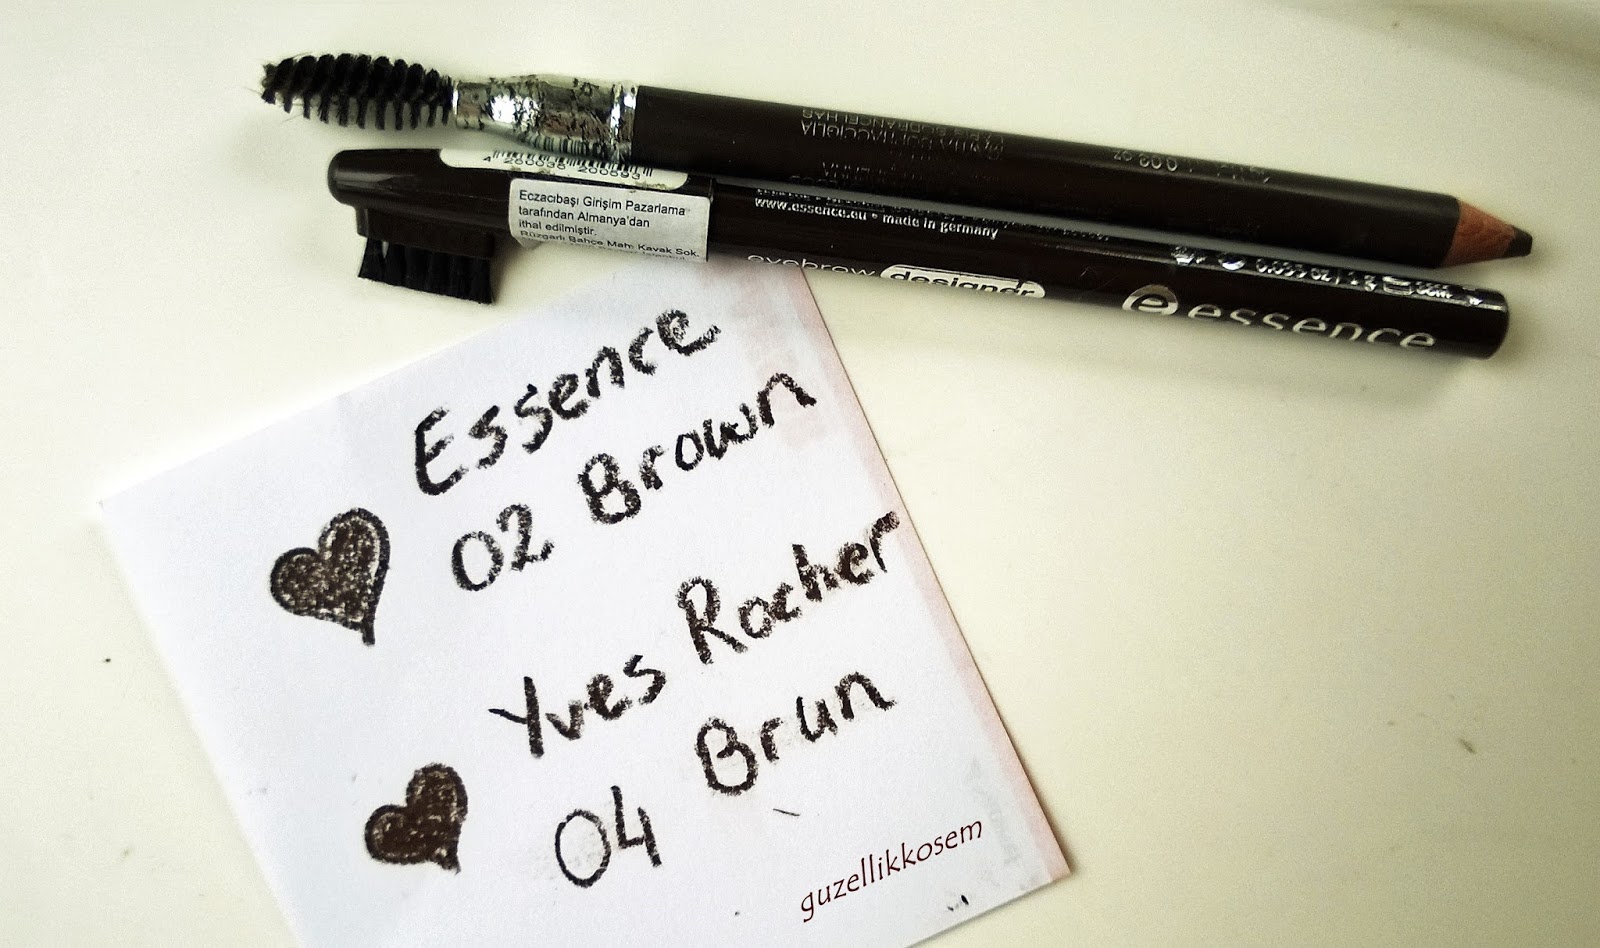 4 200036 200093
Eczacıbaşı Girişim Pazarlama
tarafından Almanya'dan
ithal edilmiştir.
Rüzgarlı Bahçe Mah. Kavak Sok.
www.essence.eu • made in germany
eyebrow designer
e essence
Essence
02 Brown
Yves Rocher
04 Brun
guzellikkosem